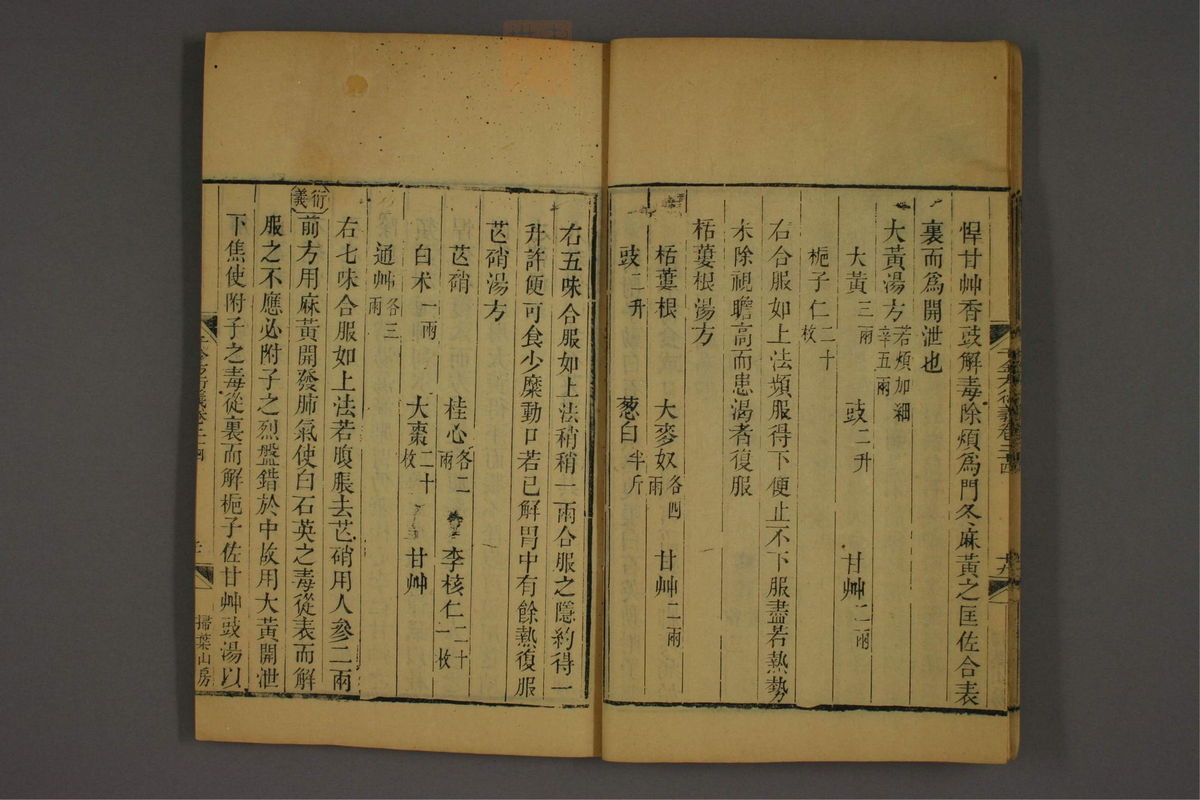 悍甘艸香豉解毒除煩爲門冬麻黃之匡佐合表
裏而爲開泄也
大黃湯方若煩加細辛五兩
大黃三兩 豉二升 甘艸二兩
梔子仁二十枚
右合服如上法頻服得下便止不下服盡若熱勢
未除視瞻高而患渴者復服
栝蔞根湯方
栝蔞根 大麥奴各四兩 甘艸二兩
豉二升 葱白半斤
右五味合服如上法稍稍一兩合服之隱約得一
升許便可食少糜動口若已解胃中有餘熱復服
芒硝湯方
芒硝 桂心各二兩 李核仁二十一枚
白朮一兩 大棗二十枚 甘艸
通艸各三兩
右七味合服如上法若腹脹去芒硝用人參二兩
衍義
前方用麻黃開發肺氣使白石英之毒從表而解
服之不應必附子之烈盤錯於中故用大黃開泄
下焦使附子之毒從裏而解梔子佐甘艸豉湯以
掃葉山房